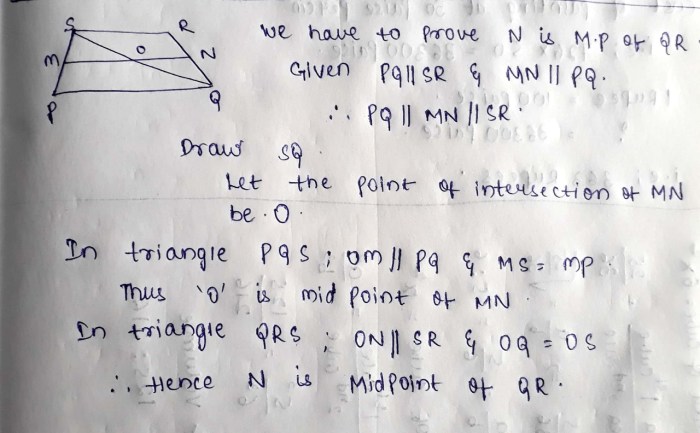 S R
M O N
P Q
We have to prove N is M.P of QR
Given PQ || SR & MN || PQ.
∴ PQ || MN || SR.
Draw SQ
Let the point of intersection of MN
be O.
In triangle PQS ; OM || PQ & MS = MP.
Thus 'O' is mid point of MN.
In triangle QRS ; ON || SR & OQ = OS
∴ Hence N is Midpoint of QR.